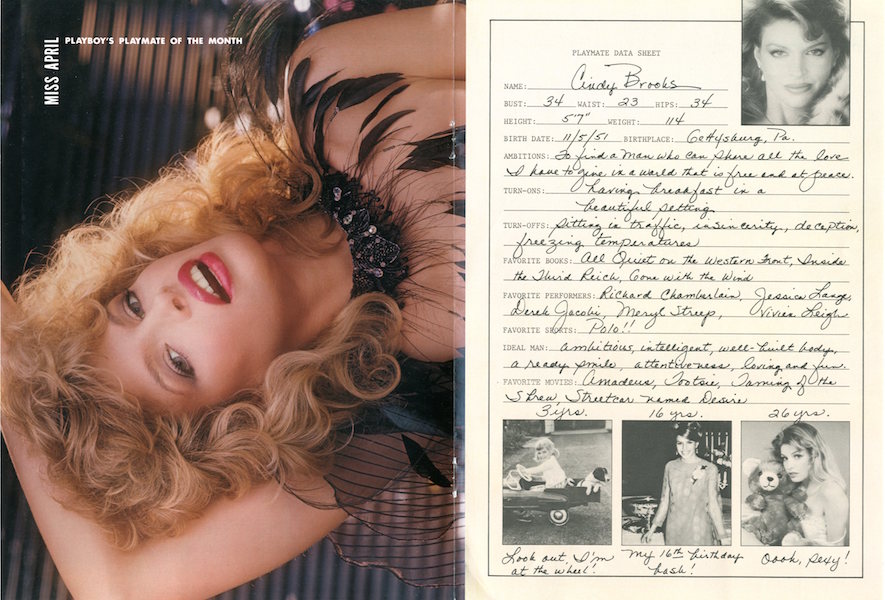 MISS APRIL
PLAYBOY'S PLAYMATE OF THE MONTH
PLAYMATE DATA SHEET
NAME: Cindy Brooks
BUST: 34 WAIST: 23 HIPS: 34
HEIGHT: 5'7" WEIGHT: 114
BIRTH DATE: 11/5/51 BIRTHPLACE: Gettysburg, Pa.
AMBITIONS: To find a man who can share all the love
I have to give in a world that is free and at peace.
TURN-ONS: having breakfast in a
beautiful setting
TURN-OFFS: Sitting in traffic, insincerity, deception,
freezing temperatures
FAVORITE BOOKS: All Quiet on the Western Front, Inside
the Third Reich, Gone with the Wind
FAVORITE PERFORMERS: Richard Chamberlain, Jessica Lange,
Derek Jacobi, Meryl Streep, Vivien Leigh
FAVORITE SPORTS: Polo!!
IDEAL MAN: ambitious, intelligent, well-built body,
a ready smile, attentiveness, loving and fun.
FAVORITE MOVIES: Amadeus, Tootsie, Taming of the
Shrew, Streetcar named Desire
3 yrs. 16 yrs. 26 yrs.
Look out, I'm
at the wheel!
My 16th birthday
bash!
Oooh, sexy!